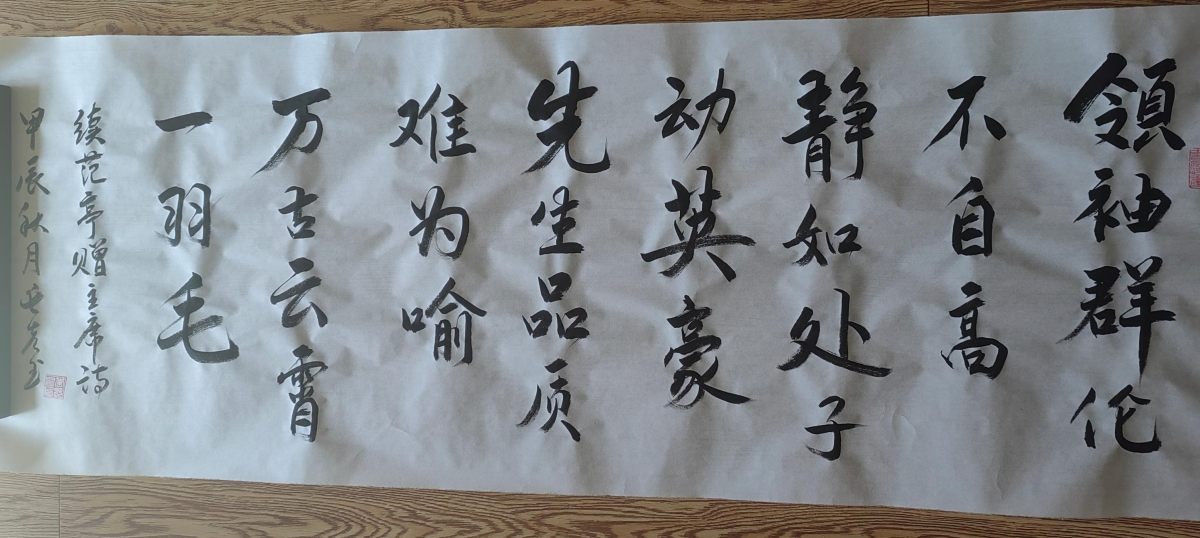 領袖群伦
不自高
静如处子
动英豪
先生品质
难为喻
万古云霄
一羽毛
续范亭赠主席诗
甲辰秋月